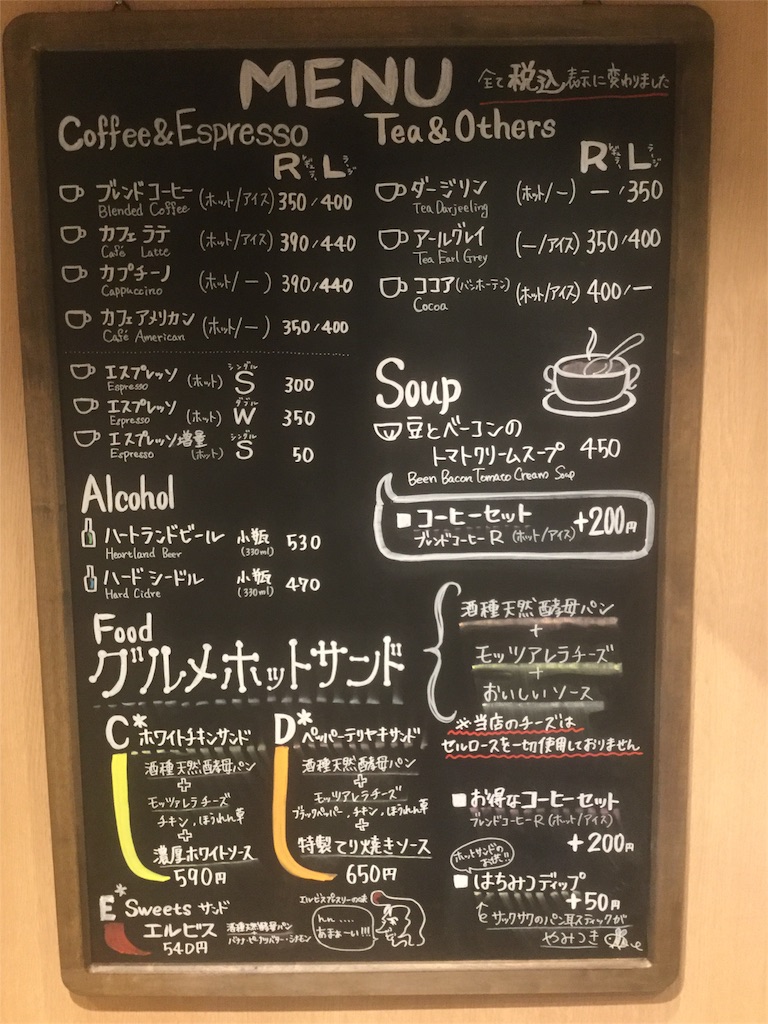 MENU
全て税込表示に変わりました
Coffee&Espresso
R レギュラー L ラージ
ブレンドコーヒー (ホット/アイス) 350/400
Blended Coffee
カフェ ラテ (ホット/アイス) 390/440
Café Latte
カプチーノ (ホット/ー) 390/440
Cappuccino
カフェアメリカン (ホット/ー) 350/400
Café American
エスプレッソ (ホット) シングル S 300
Espresso
エスプレッソ (ホット) ダブル W 350
Espresso
エスプレッソ増量 (ホット) シングル S 50
Espresso
Tea&Others
R レギュラー L ラージ
ダージリン (ホット/ー) ー/350
Tea Darjeeling
アールグレイ (ー/アイス) 350/400
Tea Earl Grey
ココア(バンホーテン) (ホット/アイス) 400/ー
Cocoa
Soup
豆とベーコンの
トマトクリームスープ 450
Been Bacon Tomaco Cream Soup
■コーヒーセット
ブレンドコーヒー R (ホット/アイス) +200円
Alcohol
ハートランドビール 小瓶 530
Heartland Beer (330ml)
ハード シードル 小瓶 470
Hard Cidre (330ml)
Food
グルメホットサンド
酒種天然酵母パン
+
モッツアレラチーズ
+
おいしいソース
※当店のチーズは
セルロースを一切使用しておりません
C* ホワイトチキンサンド
酒種天然酵母パン
+
モッツァレラチーズ
チキン,ほうれん草
+
濃厚ホワイトソース
590円
D* ペッパーテリヤキサンド
酒種天然酵母パン
+
モッツァレラチーズ
ブラックペッパー,チキン,ほうれん草
+
特製てり焼きソース
650円
■お得なコーヒーセット
ブレンドコーヒーR(ホット/アイス)
+200円
ホットサンドの
お供!!
■はちみつディップ
+50円
サックサクのパン耳スティックが
やみつき
E* Sweets サンド
エルビス
540円
酒種天然酵母パン
+
バナナ・ピーナツバター・シナモン
エルビスプレスリーの味
んん....
あまぁーい!!!